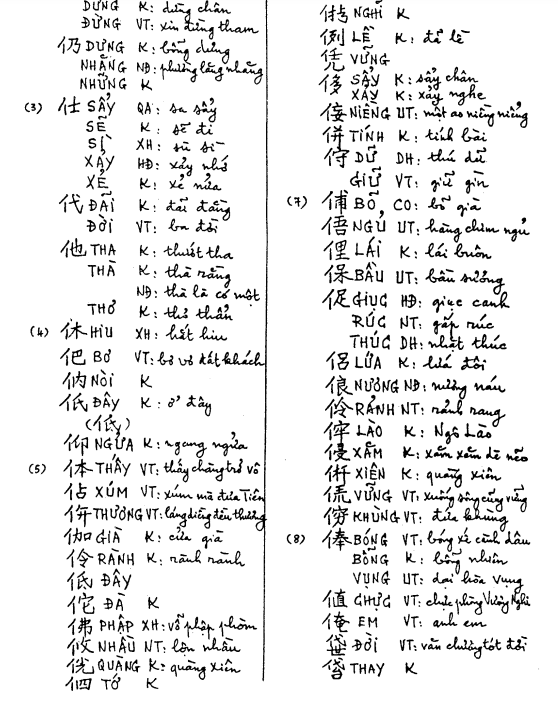 DỪNG K: dừng chân
ĐỪNG VT: xin đừng tham
仍 DƯNG K: bỗng dưng
NHẰNG NĐ: phường lằng nhằng
NHỮNG K
(3) 仕 SẨY QA: sa sẩy
SẼ K: sẽ đi
SÌ XH: sù sì
XẢY HĐ: xảy nhớ
XẺ K: xẻ nửa
代 ĐÃI K: đãi đằng
ĐỜI VT: ba đời
他 THA K: thướt tha
THÀ K: thà rằng
NĐ: thà là có một
THƠ K: thơ thẩn
(4) 休 HIU XH: hắt hiu
伌 BƠ VT: bơ vơ đất khách
㐻 NÒI K
低 ĐÂY K: ở đây
(低)
仰 NGỬA K: ngang ngửa
(5) 体 THẤY VT: thấy chàng trở về
佔 XÚM VT: xúm mà đưa Tiên
THƯƠNG VT: láng diềng đều thương
伽 GIÀ K: cửa già
伶 RÀNH K: rành rành
低 ĐÂY
佗 ĐÀ K
佛 PHẬP XH: vỗ phập phồm
NHẬU NT: lộn nhầu
侊 QUÀNG K: quàng xiên
伵 TỚ K
NGHỈ K
例 LỀ K: đã lề
VỮNG
侈 SẨY K: sẩy chân
XẢY K: xảy nghe
NIỄNG UT: một ao niễng niễng
併 TÍNH K: tính bài
DỮ DH: thú dữ
GIỮ VT: giữ gìn
(7) 俌 BÕ CO: bõ già
俉 NGỦ UT: hàng chim ngủ
俚 LÁI K: lái buôn
保 BẦU UT: bầu sướng
促 GIỤC HĐ: giục canh
RÚC NT: gấp rúc
THÚC DH: nhặt thúc
侶 LỨA K: lứa đôi
俍 NƯƠNG NĐ: nương náu
RẢNH NT: rảnh rang
LÀO K: Ngô Lào
侵 XĂM K: xăm xăm dè nẻo
XIÊN K: quàng xiên
VỮNG VT: xuống sông cũng vững
KHÙNG VT: đứa khùng
(8) 俸 BÓNG VT: bóng xế cành dâu
BỖNG K: bỗng nhiên
VỤNG UT: dại hòa vụng
値 GHỰC VT: chực phòng Vương Nghi
俺 EM VT: anh em
ĐỜI VT: văn chương tót đời
THAY K